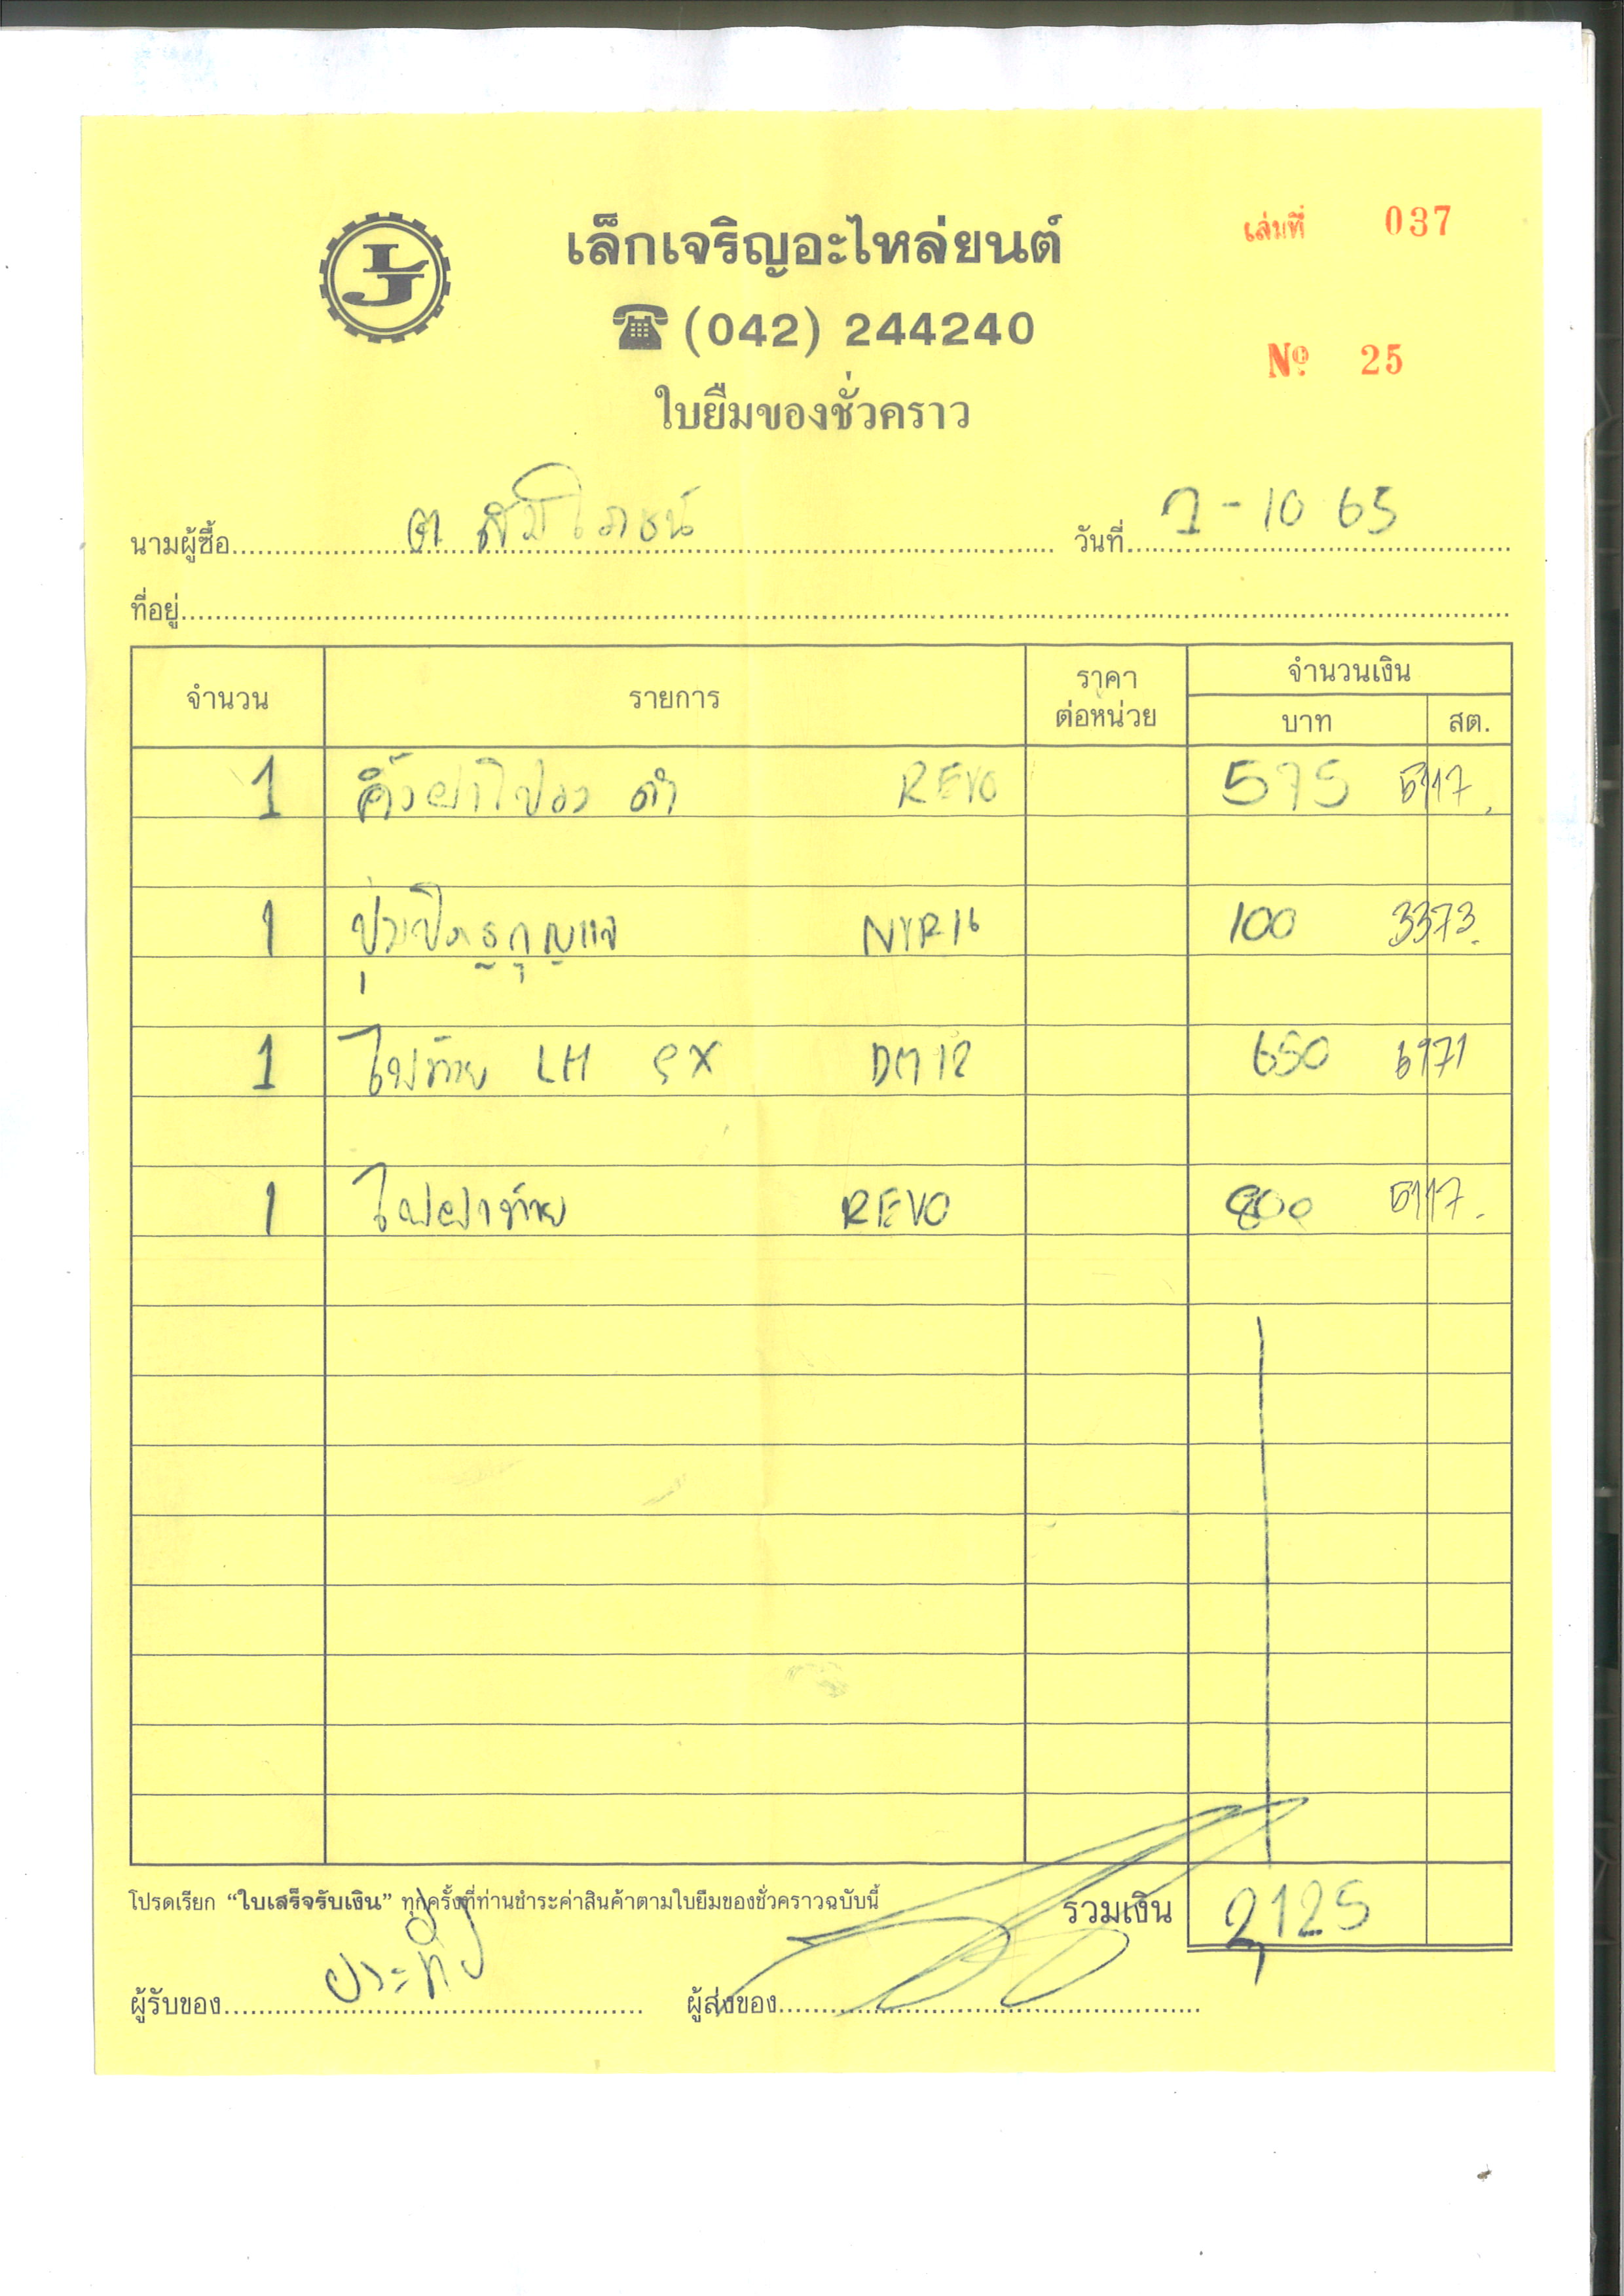 เล็กเจริญอะไหล่ยนต์
เล่มที่ 037
(042) 244240
№ 25
ใบยืมของชั่วคราว
นามผู้ซื้อ
วันที่ 7-10 65
ที่อยู่
จำนวน รายการ ราคาต่อหน่วย จำนวนเงิน
บาท สต.
1 คิ้วฝาโปรง ดำ REVO 575 5117
1 NYR16 100 3373
1 ไฟท้าย LH DM12 650 6971
1 ไฟฝาท้าย REVO 800 5117
โปรดเรียก “ใบเสร็จรับเงิน” ทุกครั้งที่ท่านชำระค่าสินค้าตามใบยืมของชั่วคราวฉบับนี้
รวมเงิน 2,125
ผู้รับของ ผู้ส่งของ